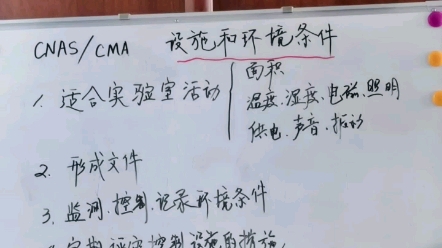 CNAS/CMA 设施和环境条件
1. 适合实验室活动
面积
温度、湿度、电磁、照明
供电、声音、振动
2. 形成文件
3. 监测、控制、记录环境条件
控制设施的措施